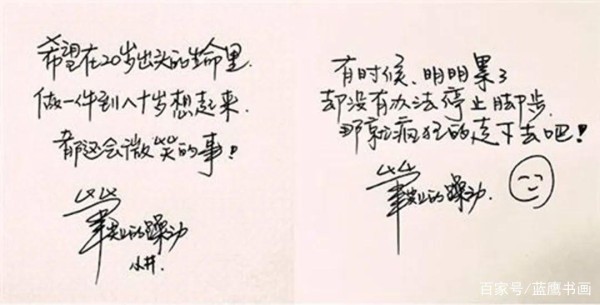 希望在20岁出头的生命里.
做一件到八十岁想起来.
都还会微笑的事!
笔尖的躁动
小井.
有时候、明明累了
却没有办法停止脚步.
那就疯狂的走下去吧!
笔尖的躁动.
百家号/蓝鹰书画